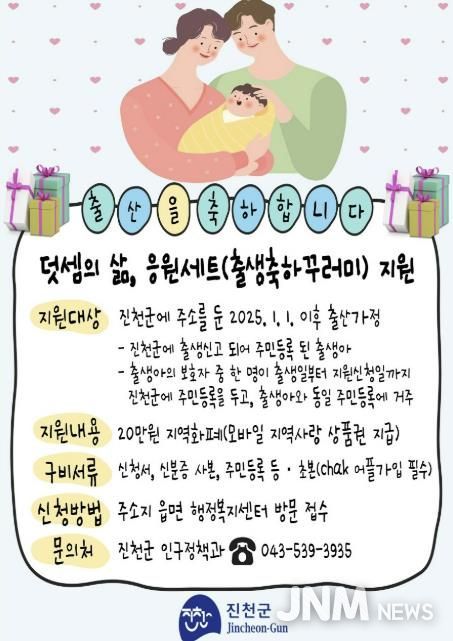 출산을 축하합니다
덧셈의 삶, 응원세트(출생축하꾸러미) 지원
지원대상 진천군에 주소를 둔 2025. 1. 1. 이후 출산가정
- 진천군에 출생신고 되어 주민등록 된 출생아
- 출생아의 보호자 중 한 명이 출생일부터 지원신청일까지
진천군에 주민등록을 두고, 출생아와 동일 주민등록에 거주
지원내용 20만원 지역화폐(모바일 지역사랑 상품권 지급)
구비서류 신청서, 신분증 사본, 주민등록 등·초본(chak 어플가입 필수)
신청방법 주소지 읍면 행정복지센터 방문 접수
문의처 진천군 인구정책과 ☎ 043-539-3935
진천군
Jincheon-Gun
JNM NEWS